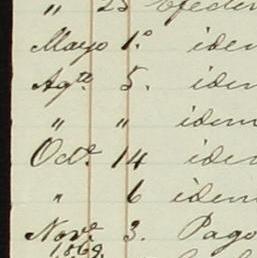 " 25
Mayo 1.º iden
Agto 5. iden
" " idem
Octe. 14 iden
" 6 idem
Nove. 3. Pago
1869.